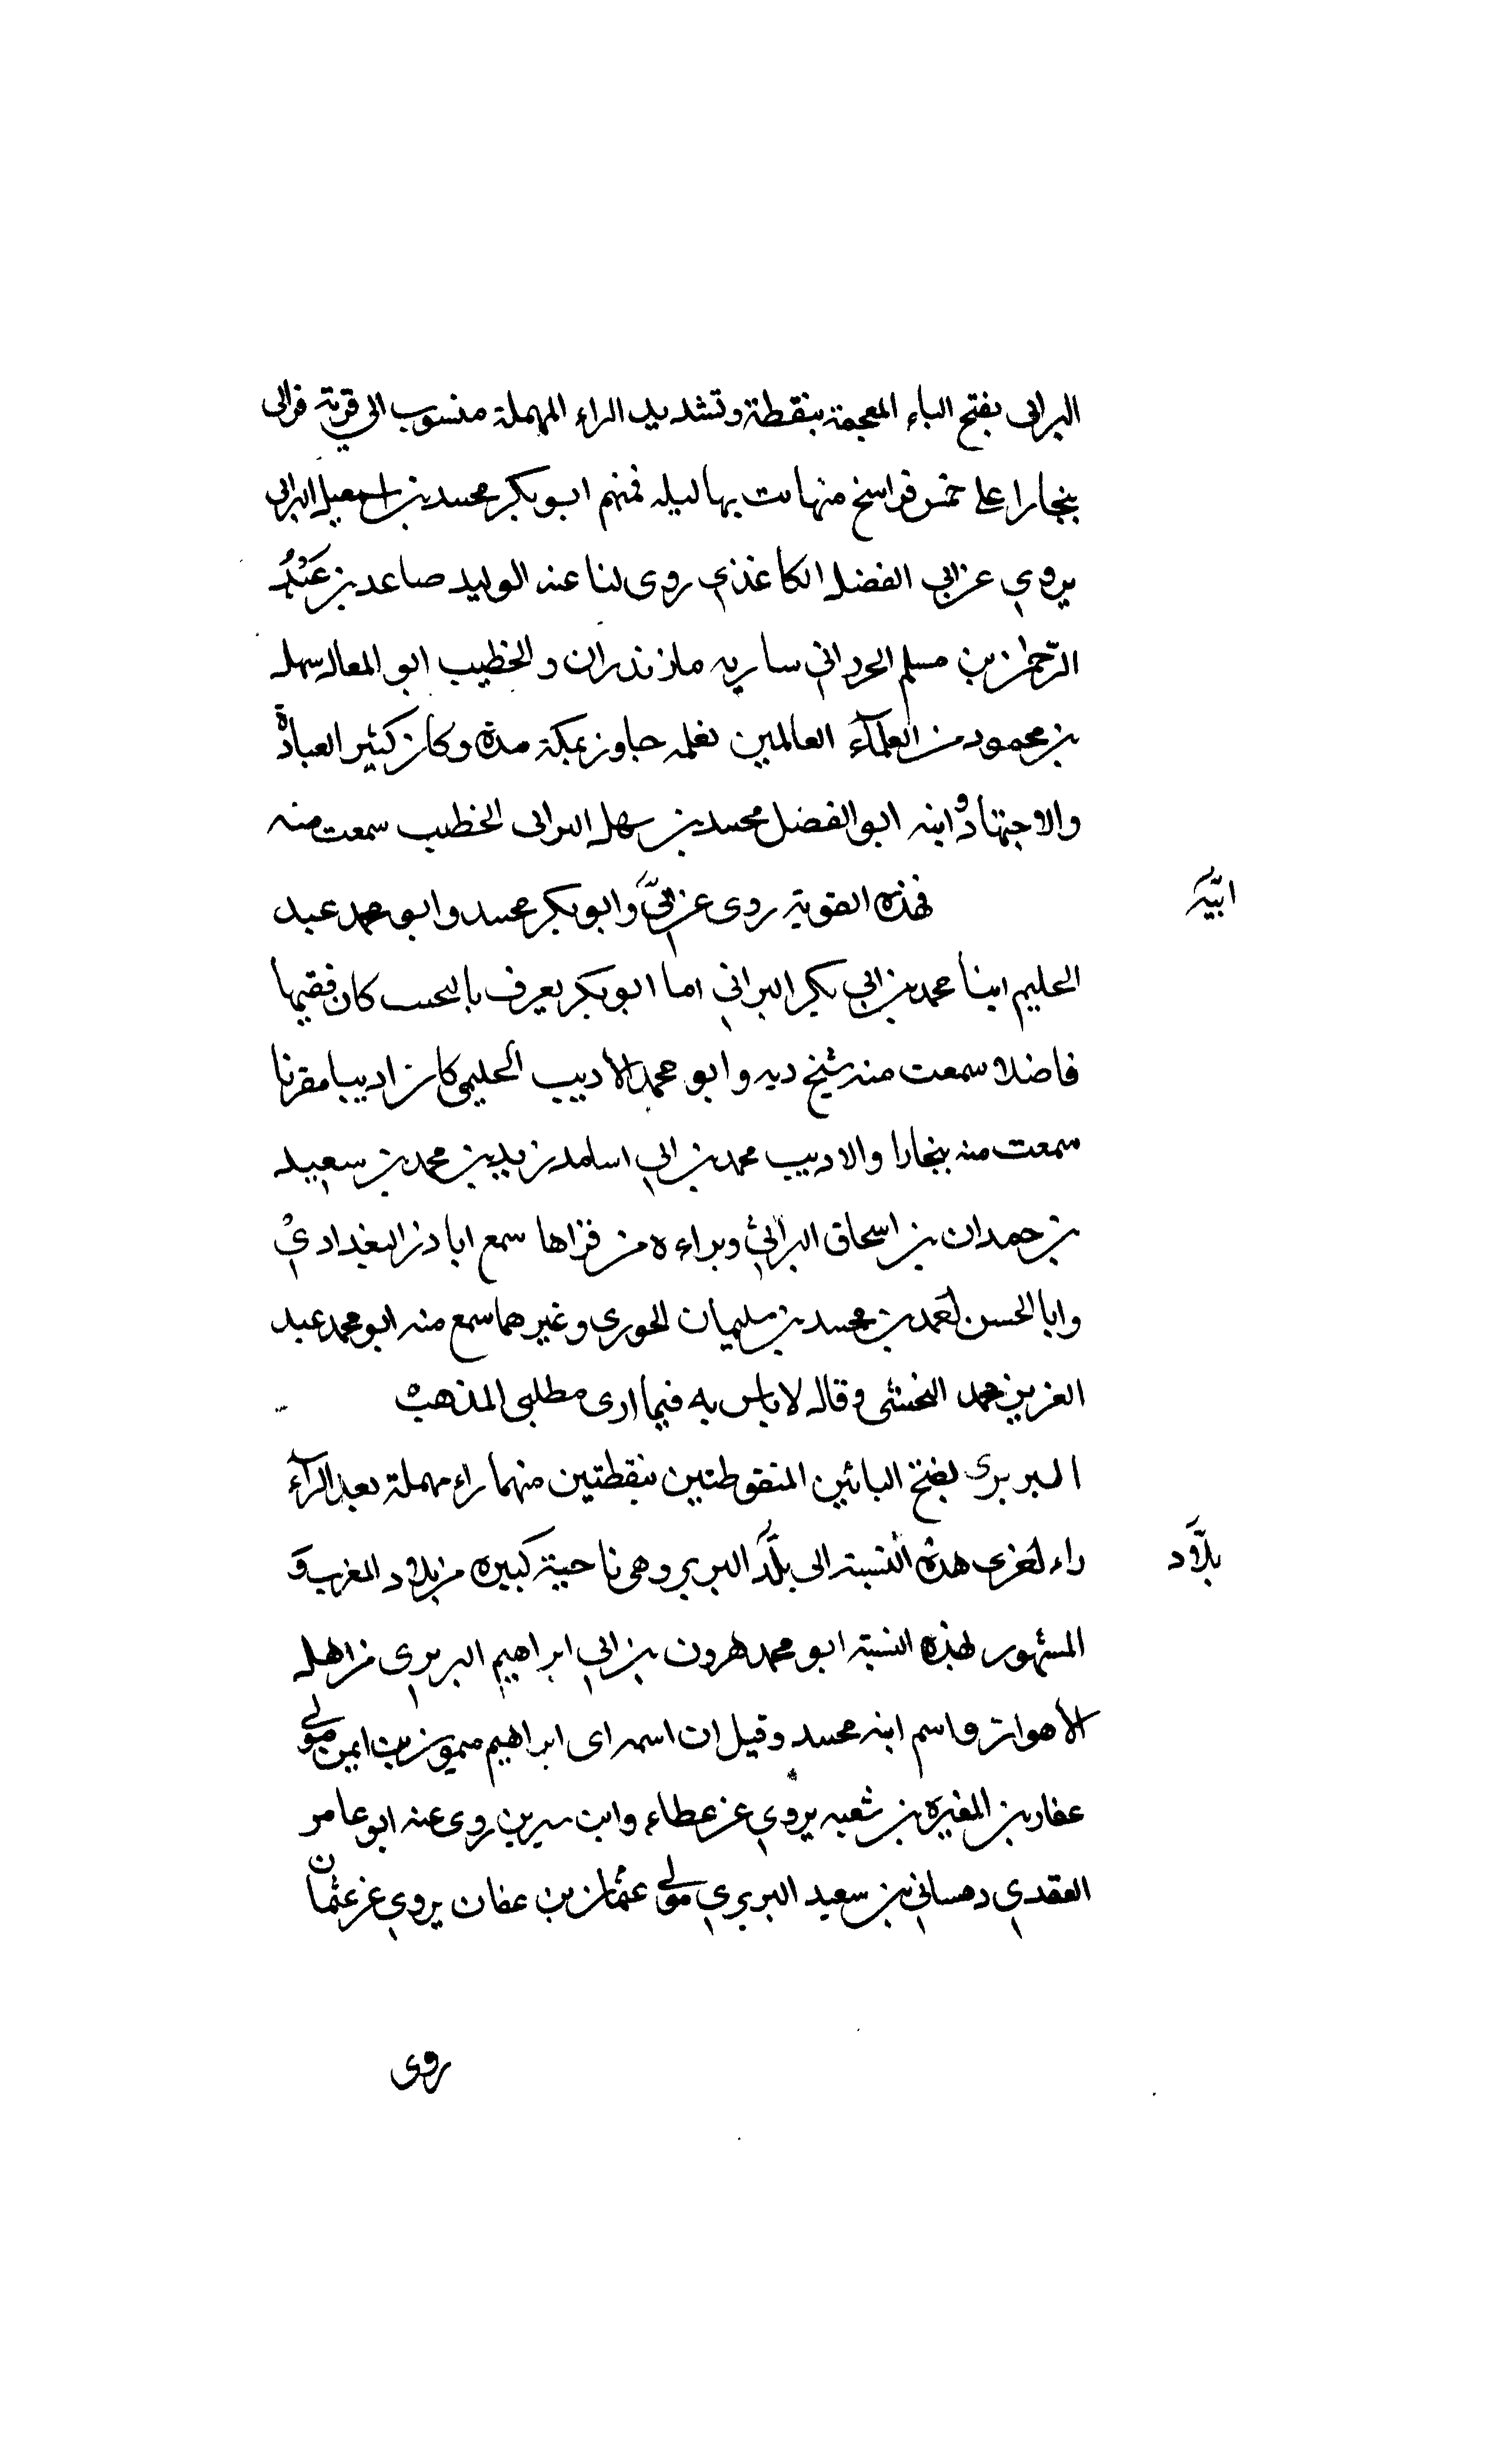 البرانى بفتح الباء المعجمة بنقطة وتشديد الراء المهملة منسوب الى قرية
بنجارا على خمس فراسخ منها بت بها ليله فمنهم ابو بكر محمد بن اسمعيل البرانى
يروي عن ابي الفضل الكاغذي روى لنا عنه الوليد صاعد بن عبد
الرحمن بن مسلم سارية مازندران والخطيب ابو المعالى سهل
بن محمود من العلمآء العالمين بعلمه جاور بمكة مدة وكان كثير العبادة
والاجتهاد و ابنه ابو الفضل محمد بن سهل البرانى الخطيب سمعت منه
فهذه القوية روى عن ابيّ وابو بكر محمد وابو محمد عبد
ابيّه
الحليم ابنا محمد بن ابي بكر البراني اما ابو بكر يعرف كان فقيها
فاضلا سمعت منه بشيخ ديه وابو محمد الأديب الحليمي كان اديبا مقرئا
سمعت منه بنجارا والاديب محمد بن ابي اسامد زيد بن محمد بن سعيد
بن حمدان بن اسحاق البراني وبراءه من قراها سمع ابا ذر البغدادي
وابا الحسن احمد بن محمد بن سليمان الجوري وغيرهما سمع منه ابو محمد عبد
العزيز بن محمد النخشى وقال لا باس به فيما ارى مطلبى المذهب
البربرى بفتح البائين المنقوطتين بنقطتين منهما راء مهملة بعد الرآء
راء اخرى هذه النسبة الى بلد البربر وهى ناحية كبيرة من بلاد المغرب و
بلاد
المشهور بهذه النسبة ابو محمد هرون بن ابي ابراهيم البربري من اهل
الأهواز واسم ابنه محمد وقيل ان اسمه اى ابراهيم ميمون بن ايمن مولى
عفار بن المغيرة بن شعبه يروي عن عطاء وابن سيرين روى عنه ابو عامر
العقدي بن سعيد البربري مولى عثمان بن عفان يروي عن عثمان
روى